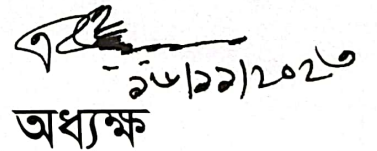 ১৮/১১/২০২৩
অধ্যক্ষ